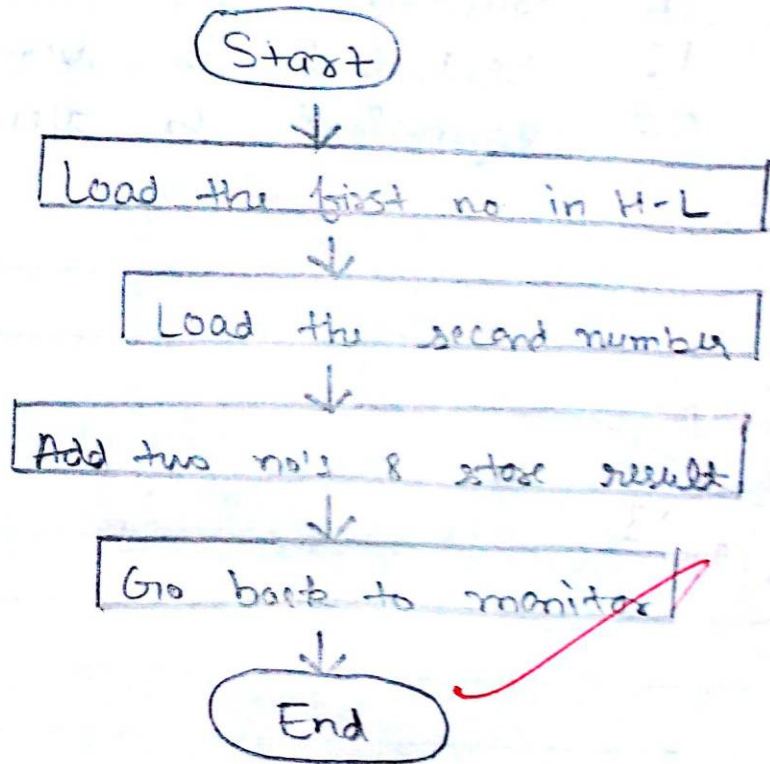 Start
Load the first no in H-L
Load the second number
Add two no's & store result
Go back to monitor
End